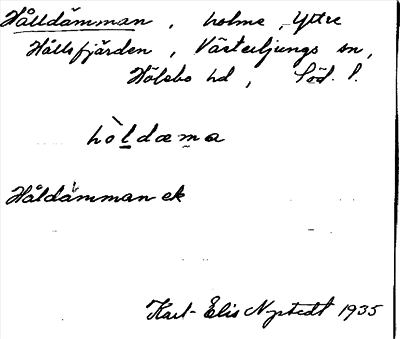 Hålldämman, holme, Yttre
Hållsfjärden, Västerljungs sn,
Hölebo hd, Söd. l.
hòldæma
Håldämman ek
Karl-Elis Nystedt 1935